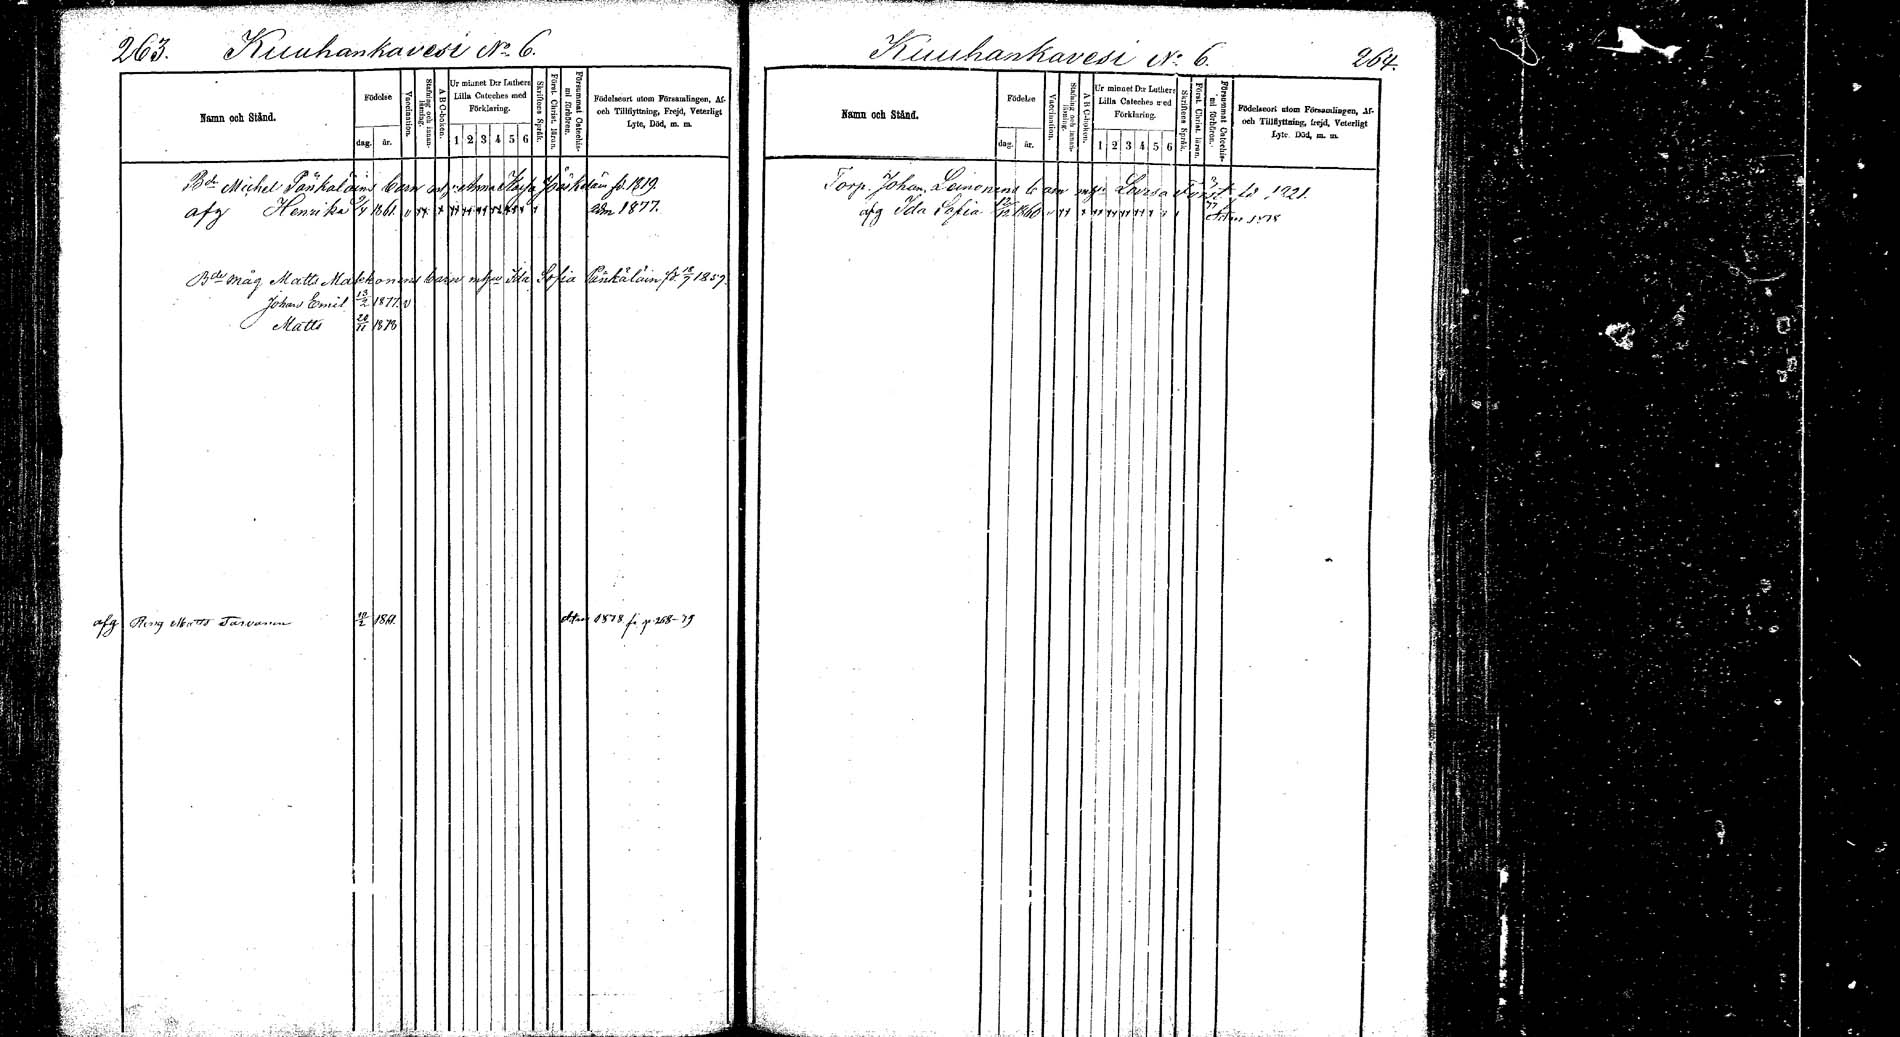 263. Kuuhankavesi No 6.
Namn och Stånd.
Födelse
dag. år.
Vaccination.
Stafning och innan-läsning.
A B C-boken.
Ur minnet D:r Luthers
Lilla Cateches med
Förklaring.
1 2 3 4 5 6
Skriftens Språk.
Först. Christ. läran.
Försummat Catechis-mi förhören.
Födelseort utom Församlingen, Af-
och Tillflyttning, Frejd, Veterligt
Lyte, Död, m. m.
Bde Michel Pänkäläins barn Anna Kaisa fd. 1819.
afg Henrika 2/4 1861. 1877.
Bde måg Matts Makkonens barn Ida Sofia Pänkäläin fd. 18/7 1857.
Johan Emil 13/2 1877. v
Matts 20/11 1878
afg Matts Tarvanen 1861. 1878 p. 268-79
Kuuhankavesi No 6. 264.
Namn och Stånd.
Födelse
dag. år.
Vaccination.
Stafning och innan-läsning.
A B C-boken.
Ur minnet D:r Luthers
Lilla Cateches med
Förklaring.
1 2 3 4 5 6
Skriftens Språk.
Först. Christ. läran.
Försummat Catechis-mi förhören.
Födelseort utom Församlingen, Af-
och Tillflyttning, frejd, Veterligt
Lyte, Död, m. m.
Torp. Johan Leinonens barn Lovisa fd. 1821.
afg Ida Sofia 1860 1878